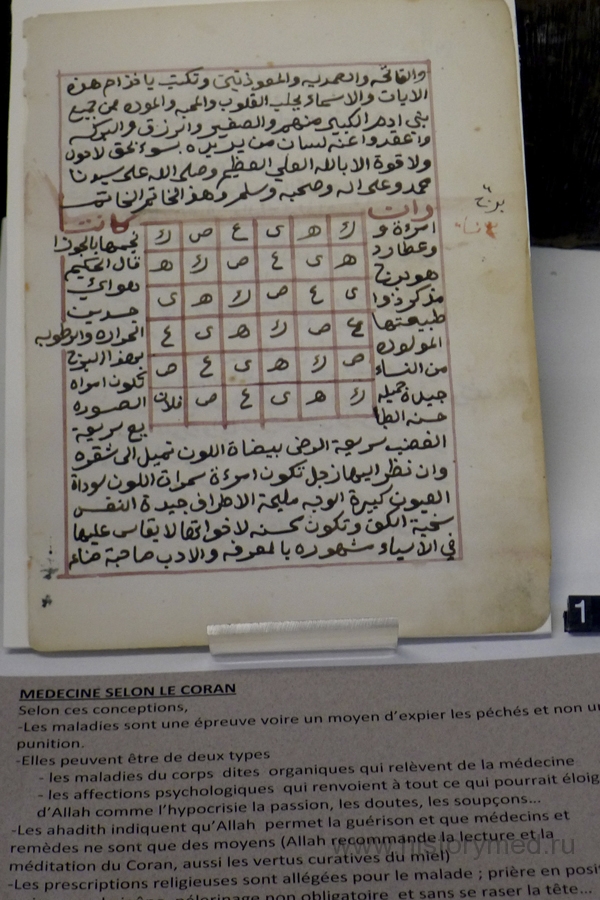 والفاتحه والصمديه والمعوذتين وتكتب يا فزام هذه
الايات والاسماء بجلب القلوب والمحبه والموده من جميع
بني ادم الكبير منهم والصغير والرزق والبركه
واعقدوا عنه لسان من يريده بسوء بحق لا حول
ولا قوة الا بالله العلي العظيم وصلى الله على سيدنا
محمد وعلى اله وصحبه وسلم وهذا الخاتم
برج
ذات كانت
امرءة و ك هـ ى ع ص ك نجمها بالجوزا
وعطارد هـ ى ع ص ك هـ قال الحكيم
هو برج ى ع ص ك هـ ى هوائي
مذكر ذوا جسدين
طبيعتها ع ص ك هـ ى ع الحراره والرطوبه
المولوده ص ك هـ ى ع ص بهذا البرج
من النساء تكون امراه
جيدة جميله ك هـ ى ع ص فلان الصوره
حسنه الطبا يع سريعة
الغضب سريعة الرضى بيضاة اللون تميل الى شقره
وان نظر اليها زحل تكون امرءة سمراة اللون سوداة
العيون كبيرة الوجه مليحة الاطراف جيدة النفس
سخية الكف وتكون محسنه لاخواتها لا يقاس عليها
في الاسياء مشهوره بالمعرفه والادب صاحبة
1
MEDECINE SELON LE CORAN
Selon ces conceptions,
-Les maladies sont une épreuve voire un moyen d'expier les péchés et non un
punition.
-Elles peuvent être de deux types
- les maladies du corps dites organiques qui relèvent de la médecine
- les affections psychologiques qui renvoient à tout ce qui pourrait éloig
d'Allah comme l'hypocrisie la passion, les doutes, les soupçons...
-Les ahadith indiquent qu'Allah permet la guérison et que médecins et
remèdes ne sont que des moyens (Allah recommande la lecture et la
méditation du Coran, aussi les vertus curatives du miel)
-Les prescriptions religieuses sont allégées pour le malade ; prière en posit
pélerinage non obligatoire et sans se raser la tête...
www.historymed.ru